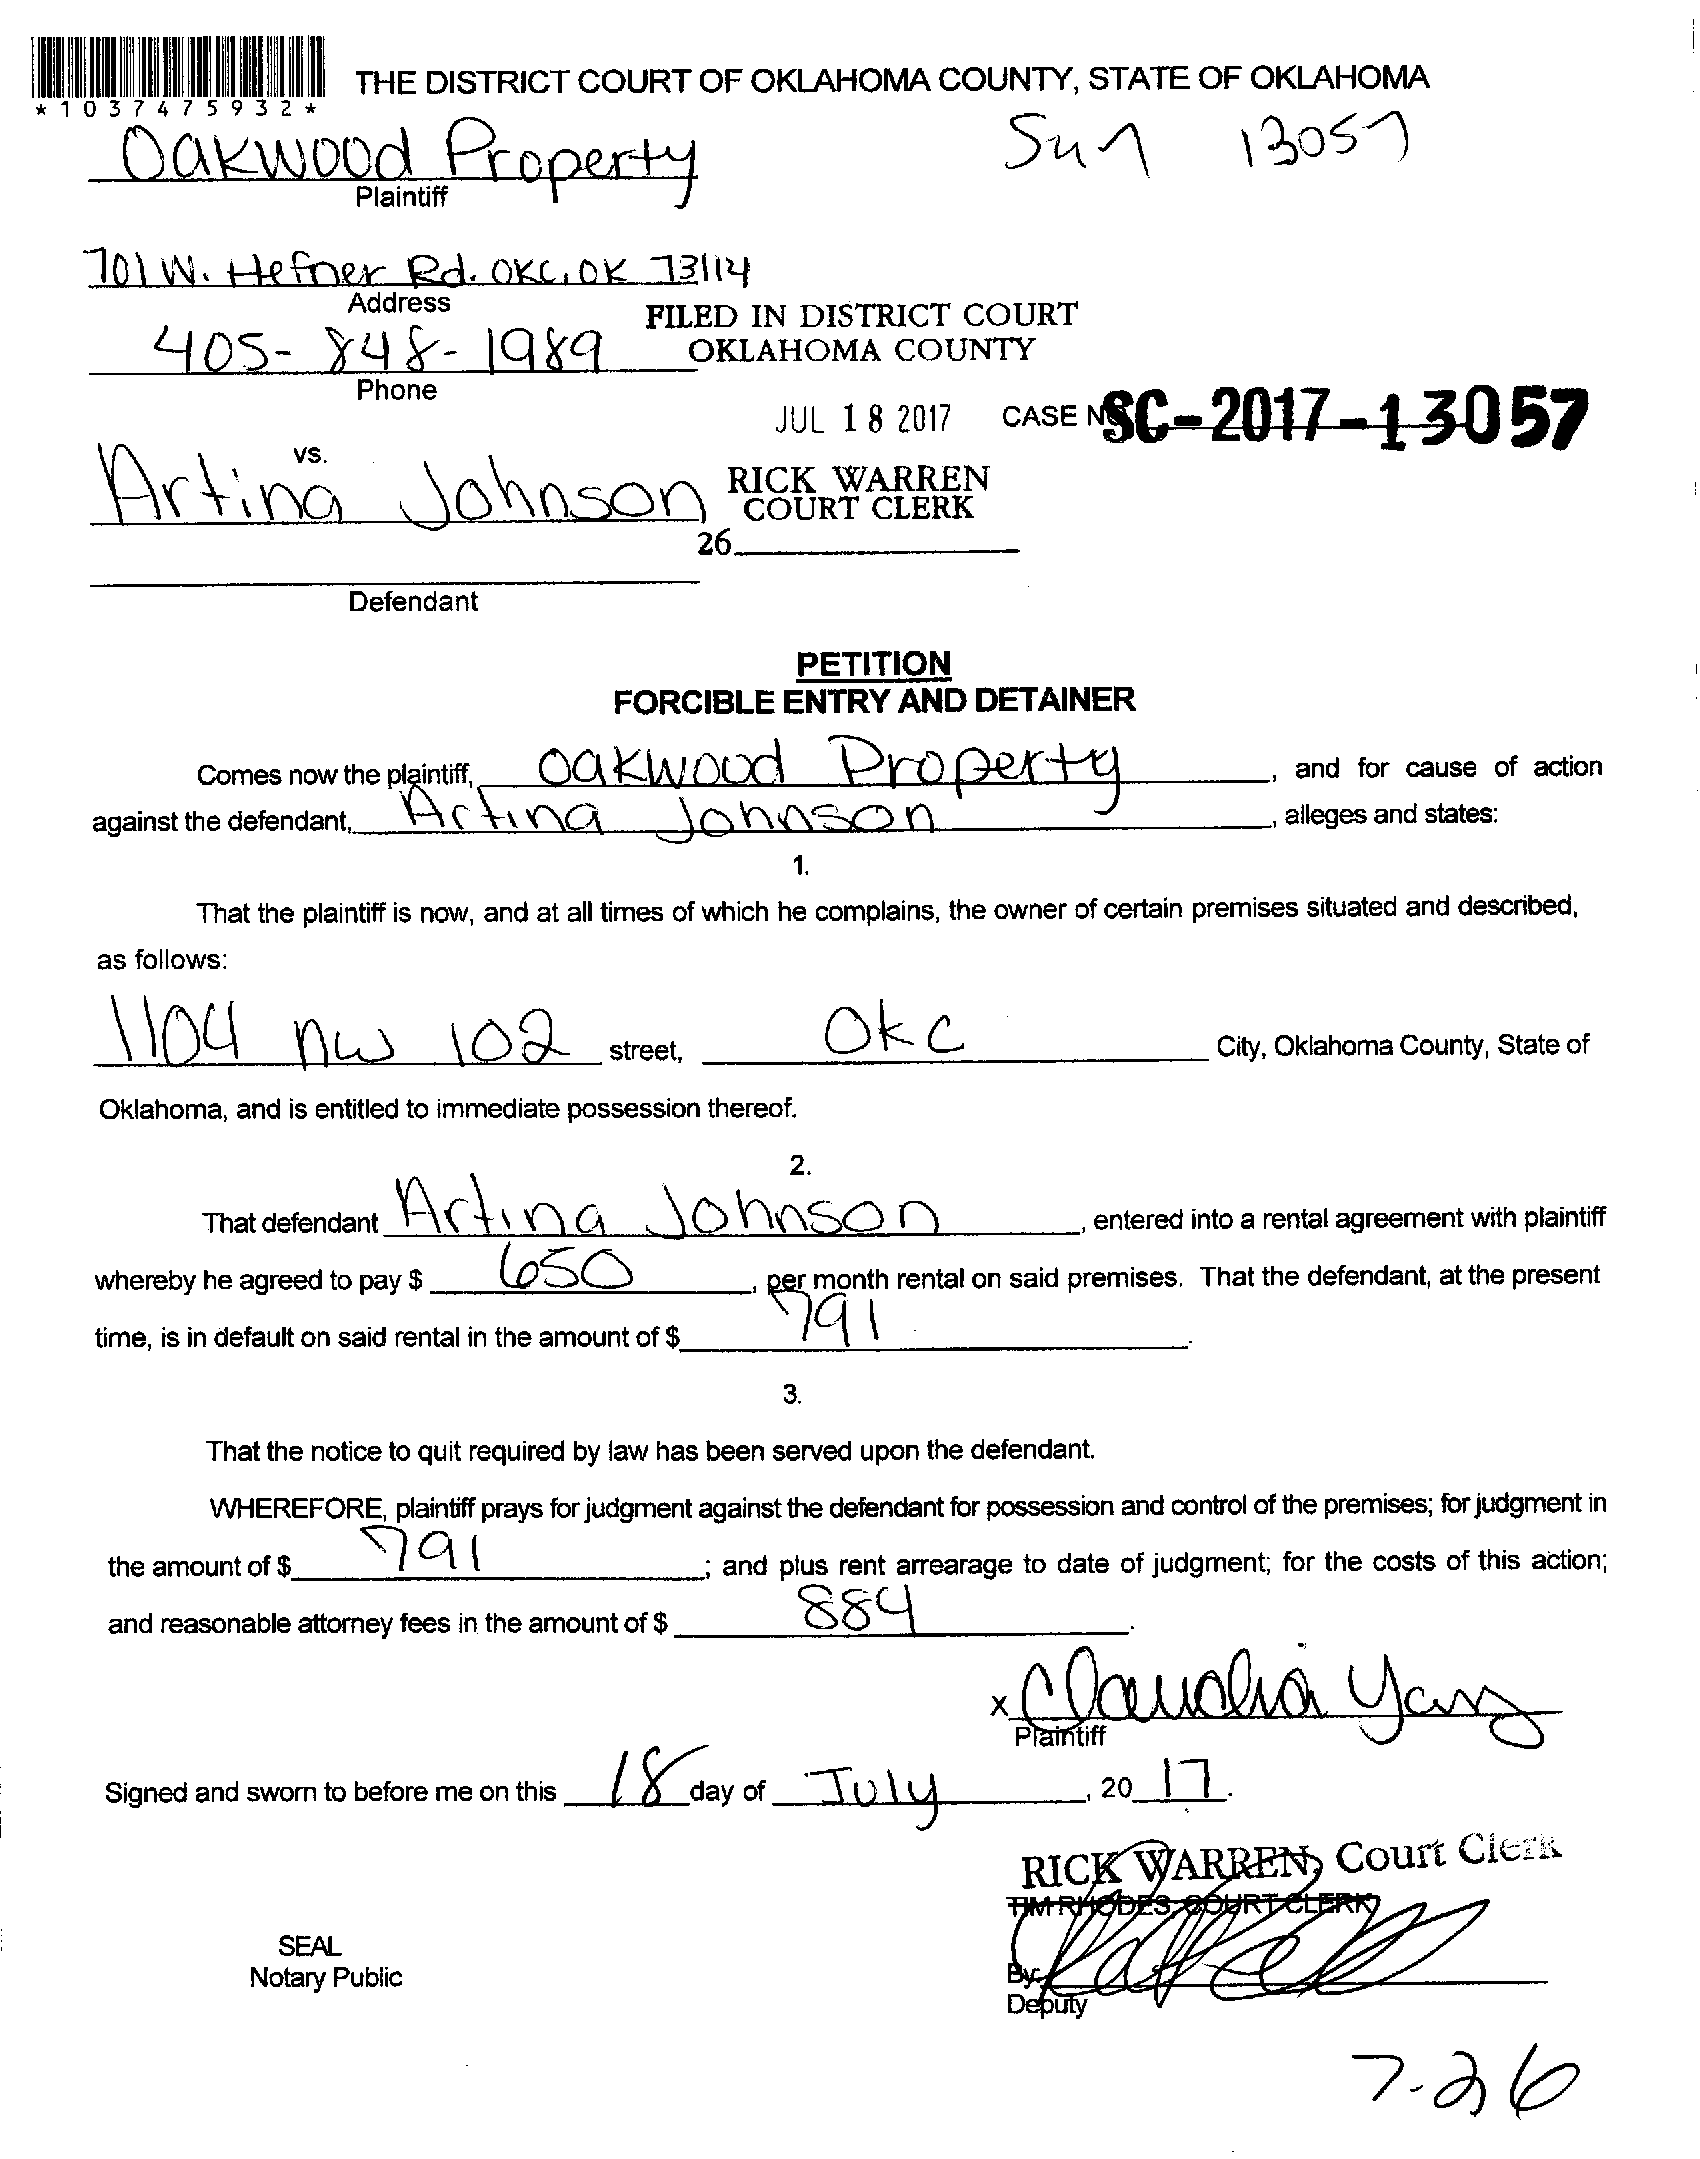 *1037475932*
THE DISTRICT COURT OF OKLAHOMA COUNTY, STATE OF OKLAHOMA
Oakwood Property
13057
Plaintiff
701 W. Hefner Rd. OKC, OK 73114
Address
FILED IN DISTRICT COURT
OKLAHOMA COUNTY
405-848-1989
Phone
JUL 18 2017 CASE NO SC-2017-13057
vs.
Artina Johnson
RICK WARREN
COURT CLERK
26
Defendant
PETITION
FORCIBLE ENTRY AND DETAINER
Comes now the plaintiff, Oakwood Property, and for cause of action
against the defendant, Artina Johnson, alleges and states:
1.
That the plaintiff is now, and at all times of which he complains, the owner of certain premises situated and described,
as follows:
1104 NW 102 street, OKC City, Oklahoma County, State of
Oklahoma, and is entitled to immediate possession thereof.
2.
That defendant Artina Johnson, entered into a rental agreement with plaintiff
whereby he agreed to pay $ 650, per month rental on said premises. That the defendant, at the present
time, is in default on said rental in the amount of $ 791.
3.
That the notice to quit required by law has been served upon the defendant.
WHEREFORE, plaintiff prays for judgment against the defendant for possession and control of the premises; for judgment in
the amount of $ 791; and plus rent arrearage to date of judgment; for the costs of this action;
and reasonable attorney fees in the amount of $ 884.
x Claudia
Plaintiff
Signed and sworn to before me on this 18 day of July, 2017.
RICK WARREN, Court Clerk
TIM RHODES, COURT CLERK
SEAL
Notary Public
By
Deputy
7-26